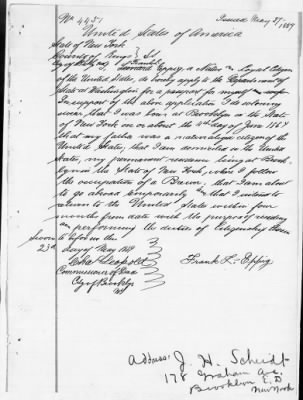 No 4451 Issued May 27/1889
United States of America
State of New York
County of Kings } SS
City of Brooklyn I, Leonard Eppig, a Native and Loyal Citizen
of the United States, do hereby apply to the Department of
State at Washington for a passport for myself and wife
In support of the above application I do solemnly
swear that I was born at Brooklyn in the State
of New York on or about the 4th day of June 1864
that my father is a naturalized citizen of the
United States, that I am domiciled in the United
States, my permanent residence being at Brook-
lyn in the State of New York, where I follow
the occupation of a Brewer, that I am about
to go abroad temporarily and that I intend to
return to the United States within four
months from date with the purpose of residing
and performing the duties of citizenship therein
Sworn to before me this
23d day of May 1889
Chas Leopold Frank L. Eppig
Commissioner of Deeds
City of Brooklyn
NY
Address: J. H. Scheidt
178 Graham Ave.
Brooklyn E. D.
New York